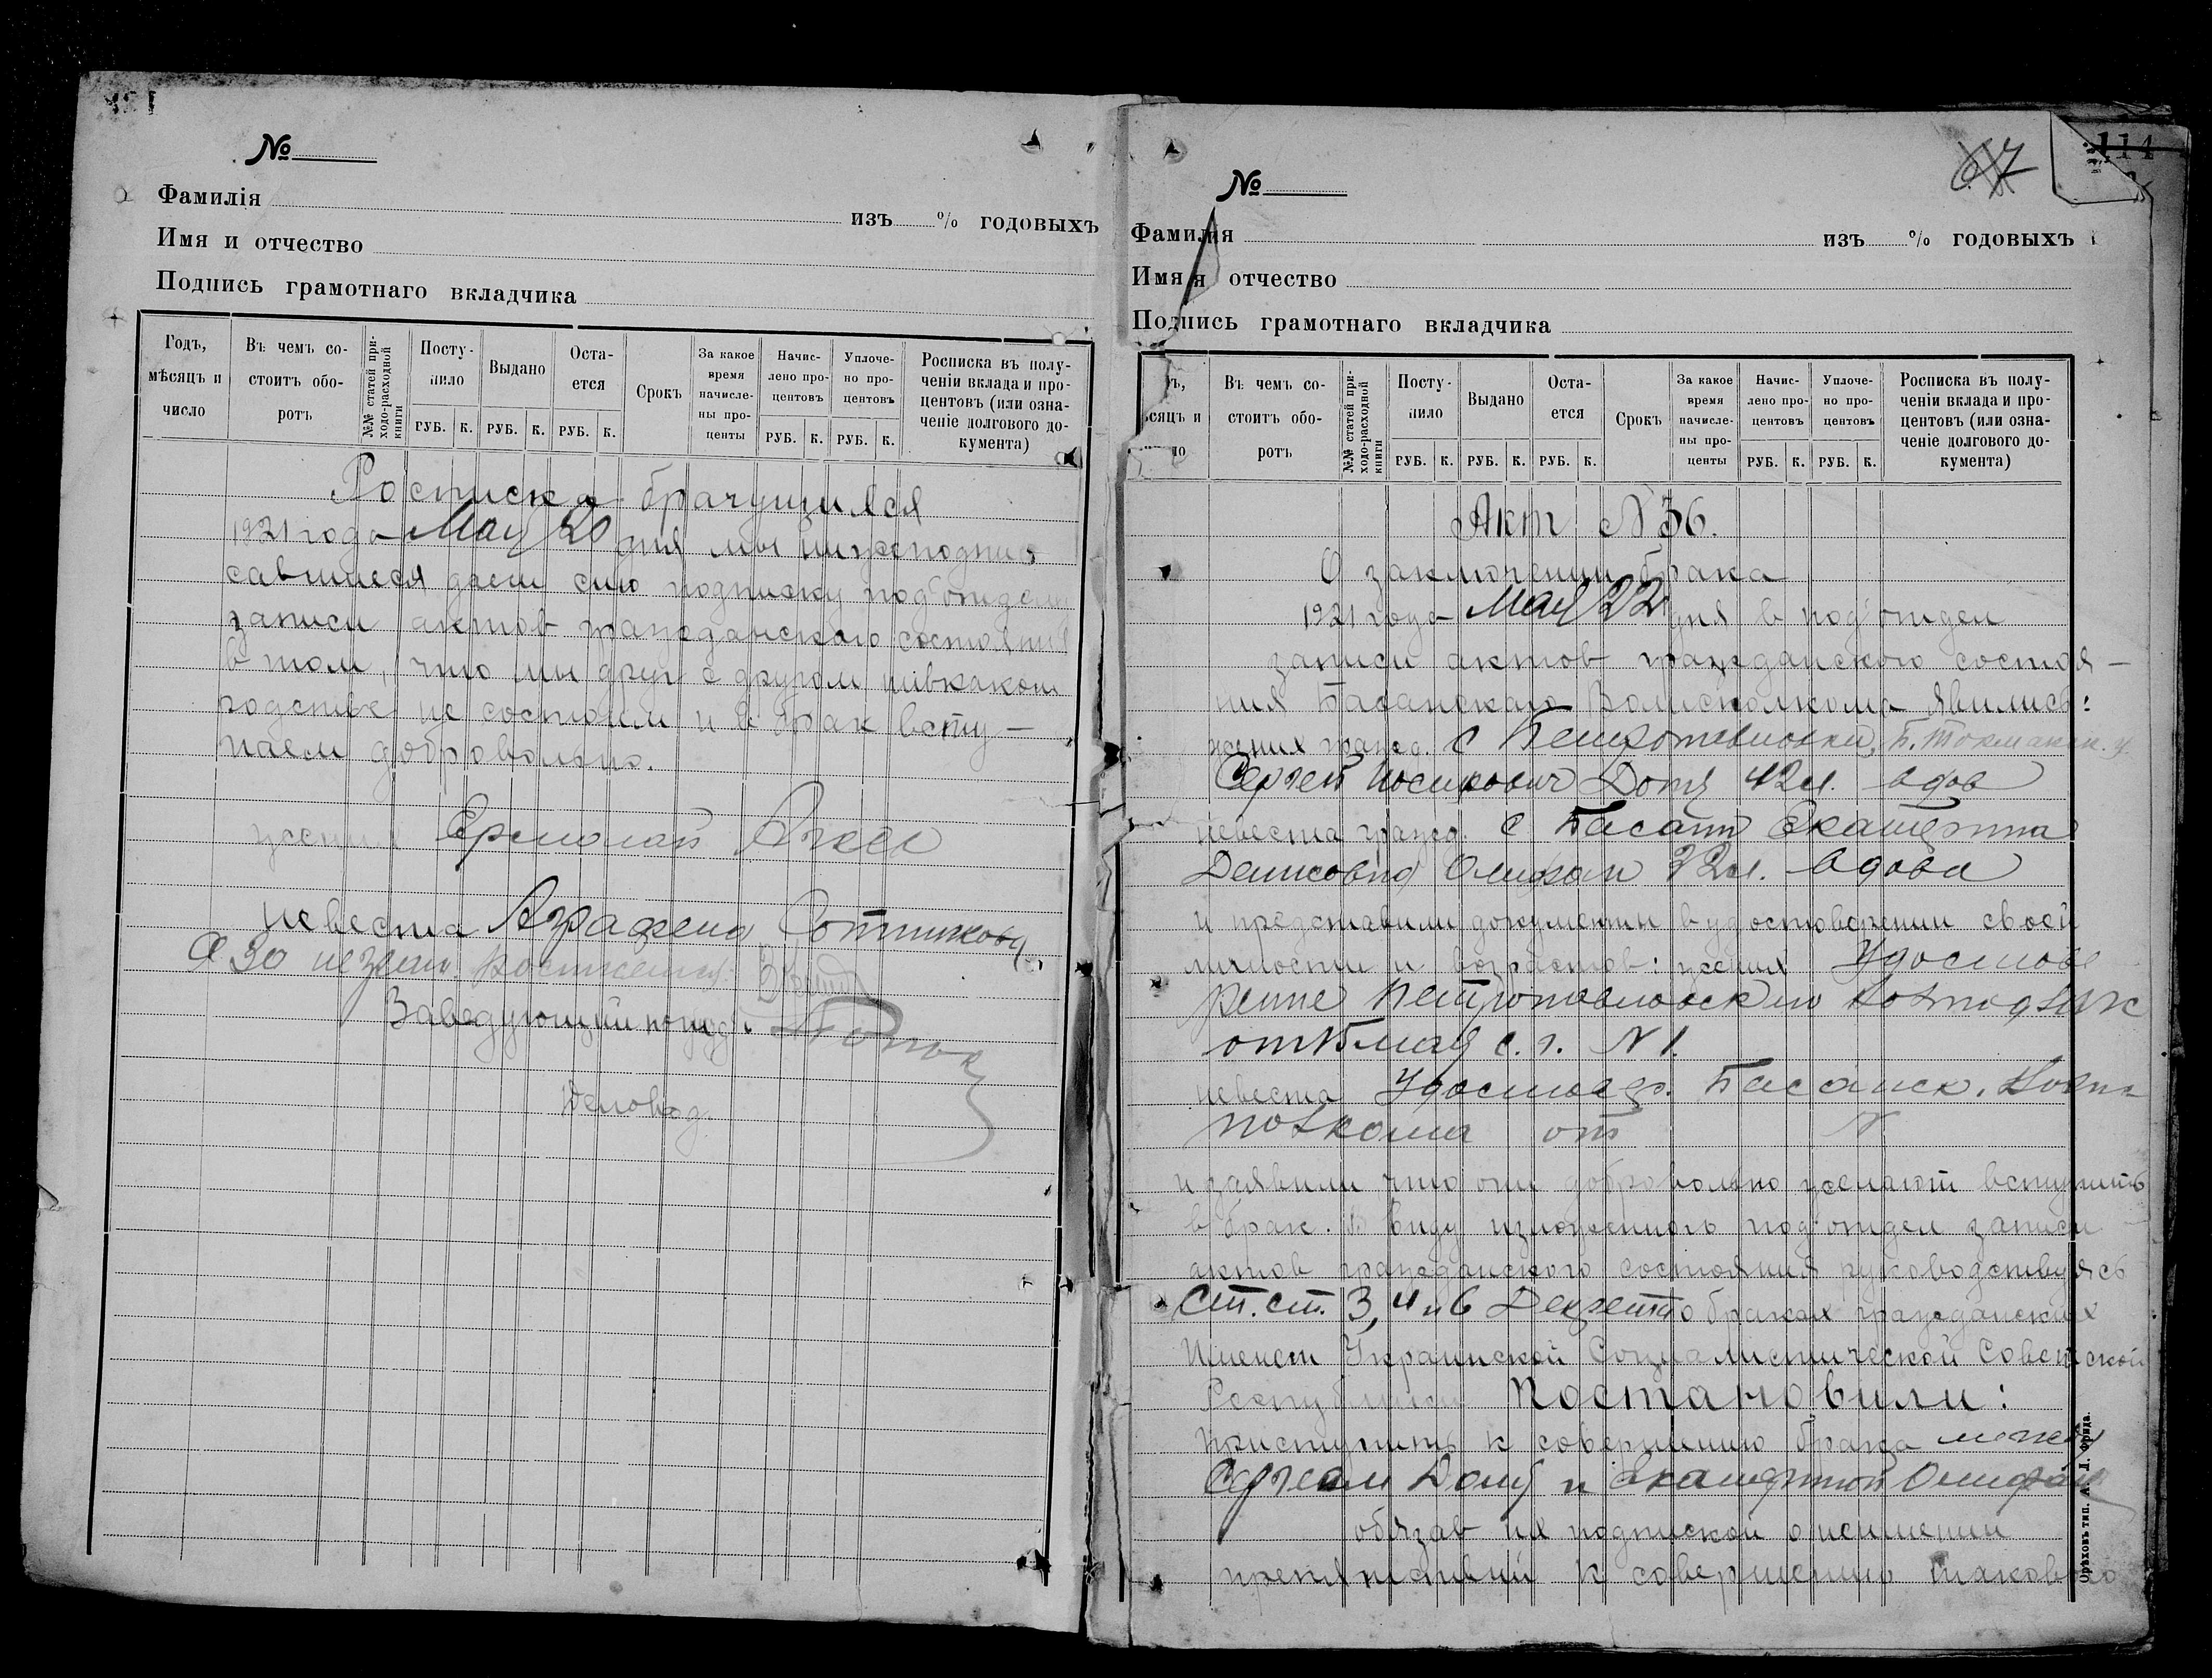 №
Фамилія изъ % годовыхъ
Имя и отчество
Подпись грамотнаго вкладчика
Годъ, мѣсяцъ и число
Въ чемъ состоитъ оборотъ
№№ статей приходо-расходной книги
Поступило РУБ. К.
Выдано РУБ. К.
Остается РУБ. К.
Срокъ
За какое время начислены проценты
Начислено процентовъ РУБ. К.
Уплочено процентовъ РУБ. К.
Росписка въ полученіи вклада и процентовъ (или означеніе долгового документа)
Росписка брачущихся
1921 года Мая 20 дня мы нижеподпи-
савшиеся даем сию подписку под'отделу
записи актов гражданского состояния
в том, что мы друг с другом ни в каком
родстве не состоим и в брак всту-
паем добровольно.
жених Ермолай
невеста Аграфена Сотникова
А за незгам. росписался:
Заведующий
Деловод.
114
67
№
Фамилія изъ % годовыхъ
Имя и отчество
Подпись грамотнаго вкладчика
Въ чемъ состоитъ оборотъ
№№ статей приходо-расходной книги
Поступило РУБ. К.
Выдано РУБ. К.
Остается РУБ. К.
Срокъ
За какое время начислены проценты
Начислено процентовъ РУБ. К.
Уплочено процентовъ РУБ. К.
Росписка въ полученіи вклада и процентовъ (или означеніе долгового документа)
Акт N 36.
О заключении брака
1921 года Мая 22 дня в под'отдел
записи актов гражданского состоя-
ния Басанского Волисполкома явились:
жених гражд. с Петропавловки, Б. Токмакск. у.
Сергей Иосипович Доля 42 л. вдов
невеста гражд. с Басань Екатерина
Денисовна Олифан 32 л. вдова
и представили документы в удостоверении своей
личности и возрастов: жених Удостове
рение Петропавловского
от 15 мая с. г. N 1.
невеста Удостовер. Басанск.
от N
и заявили что они добровольно желают вступить
в брак. В виду изложенного под'отдел записи
актов гражданского состояния руководствуясь
Ст. ст. 3, 4 и 6 Декрета о браках гражданских
Именем Украинской Социалистической Советской
Республики Постановили:
Приступить к совершению брака между
Сергеем Доля и Екатериной Олифан
обязав их подпиской о неимении
препятствий к совершению такового
Орѣховъ тип. А. Л. Фрида.